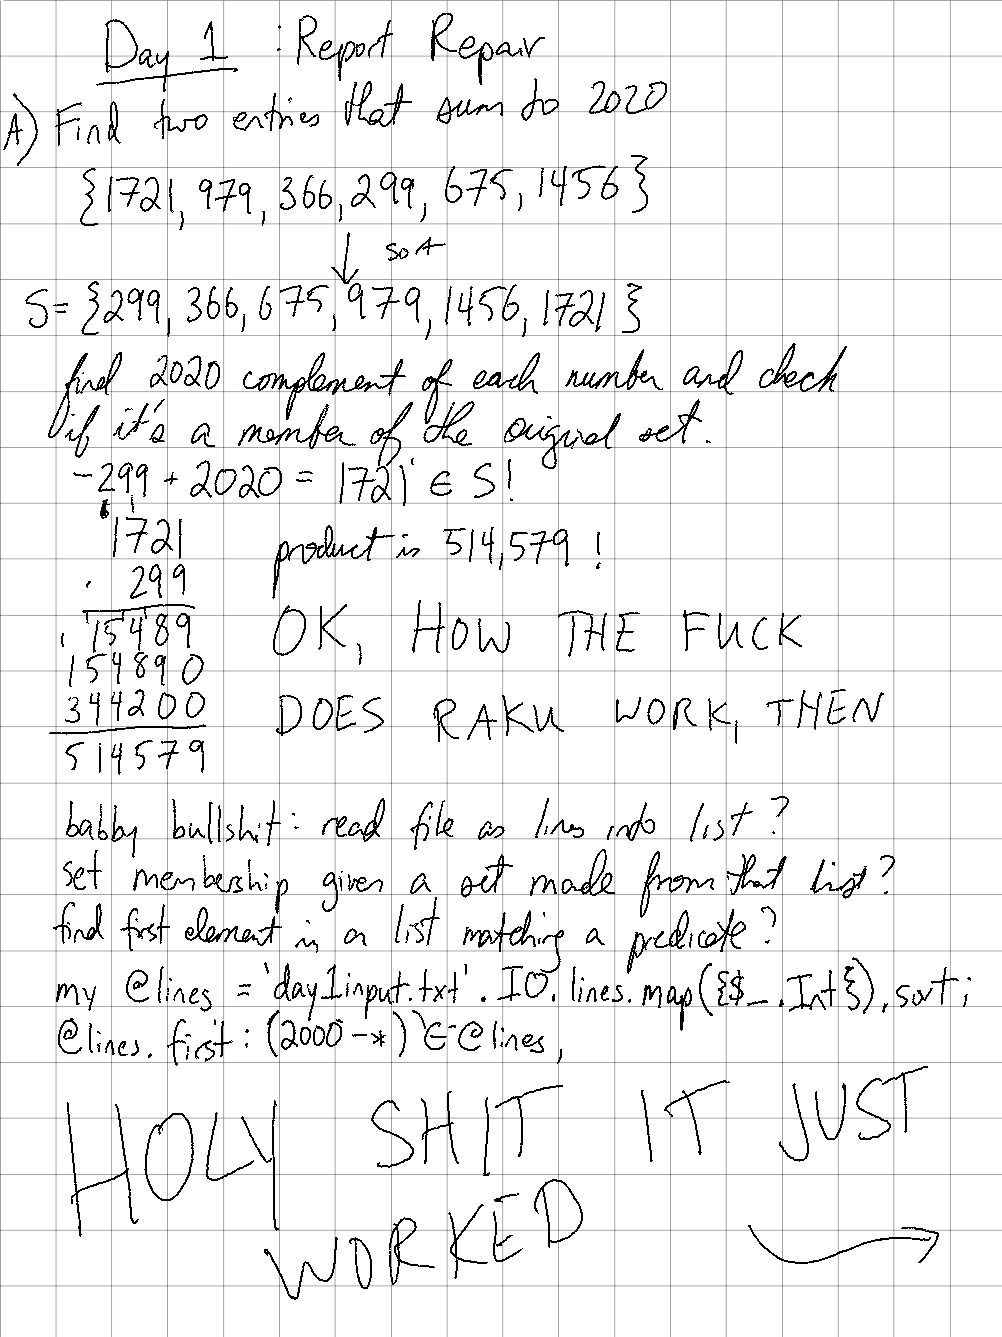 Day 1 : Report Repair
A) Find two entries that sum to 2020
{1721, 979, 366, 299, 675, 1456}
↓ sort
S= {299, 366, 675, 979, 1456, 1721}
find 2020 complement of each number and check
if it's a member of the original set.
-299 + 2020 = 1721 ∈ S!
1721
· 299
15489
154890
344200
514579
product is 514,579 !
OK, HOW THE FUCK
DOES RAKU WORK, THEN
babby bullshit: read file as lines into list?
set membership given a set made from that list?
find first element in a list matching a predicate?
my @lines = 'day1input.txt'.IO.lines.map({$_.Int}).sort;
@lines.first: (2000-*) ∈ @lines,
HOLY SHIT IT JUST
WORKED →